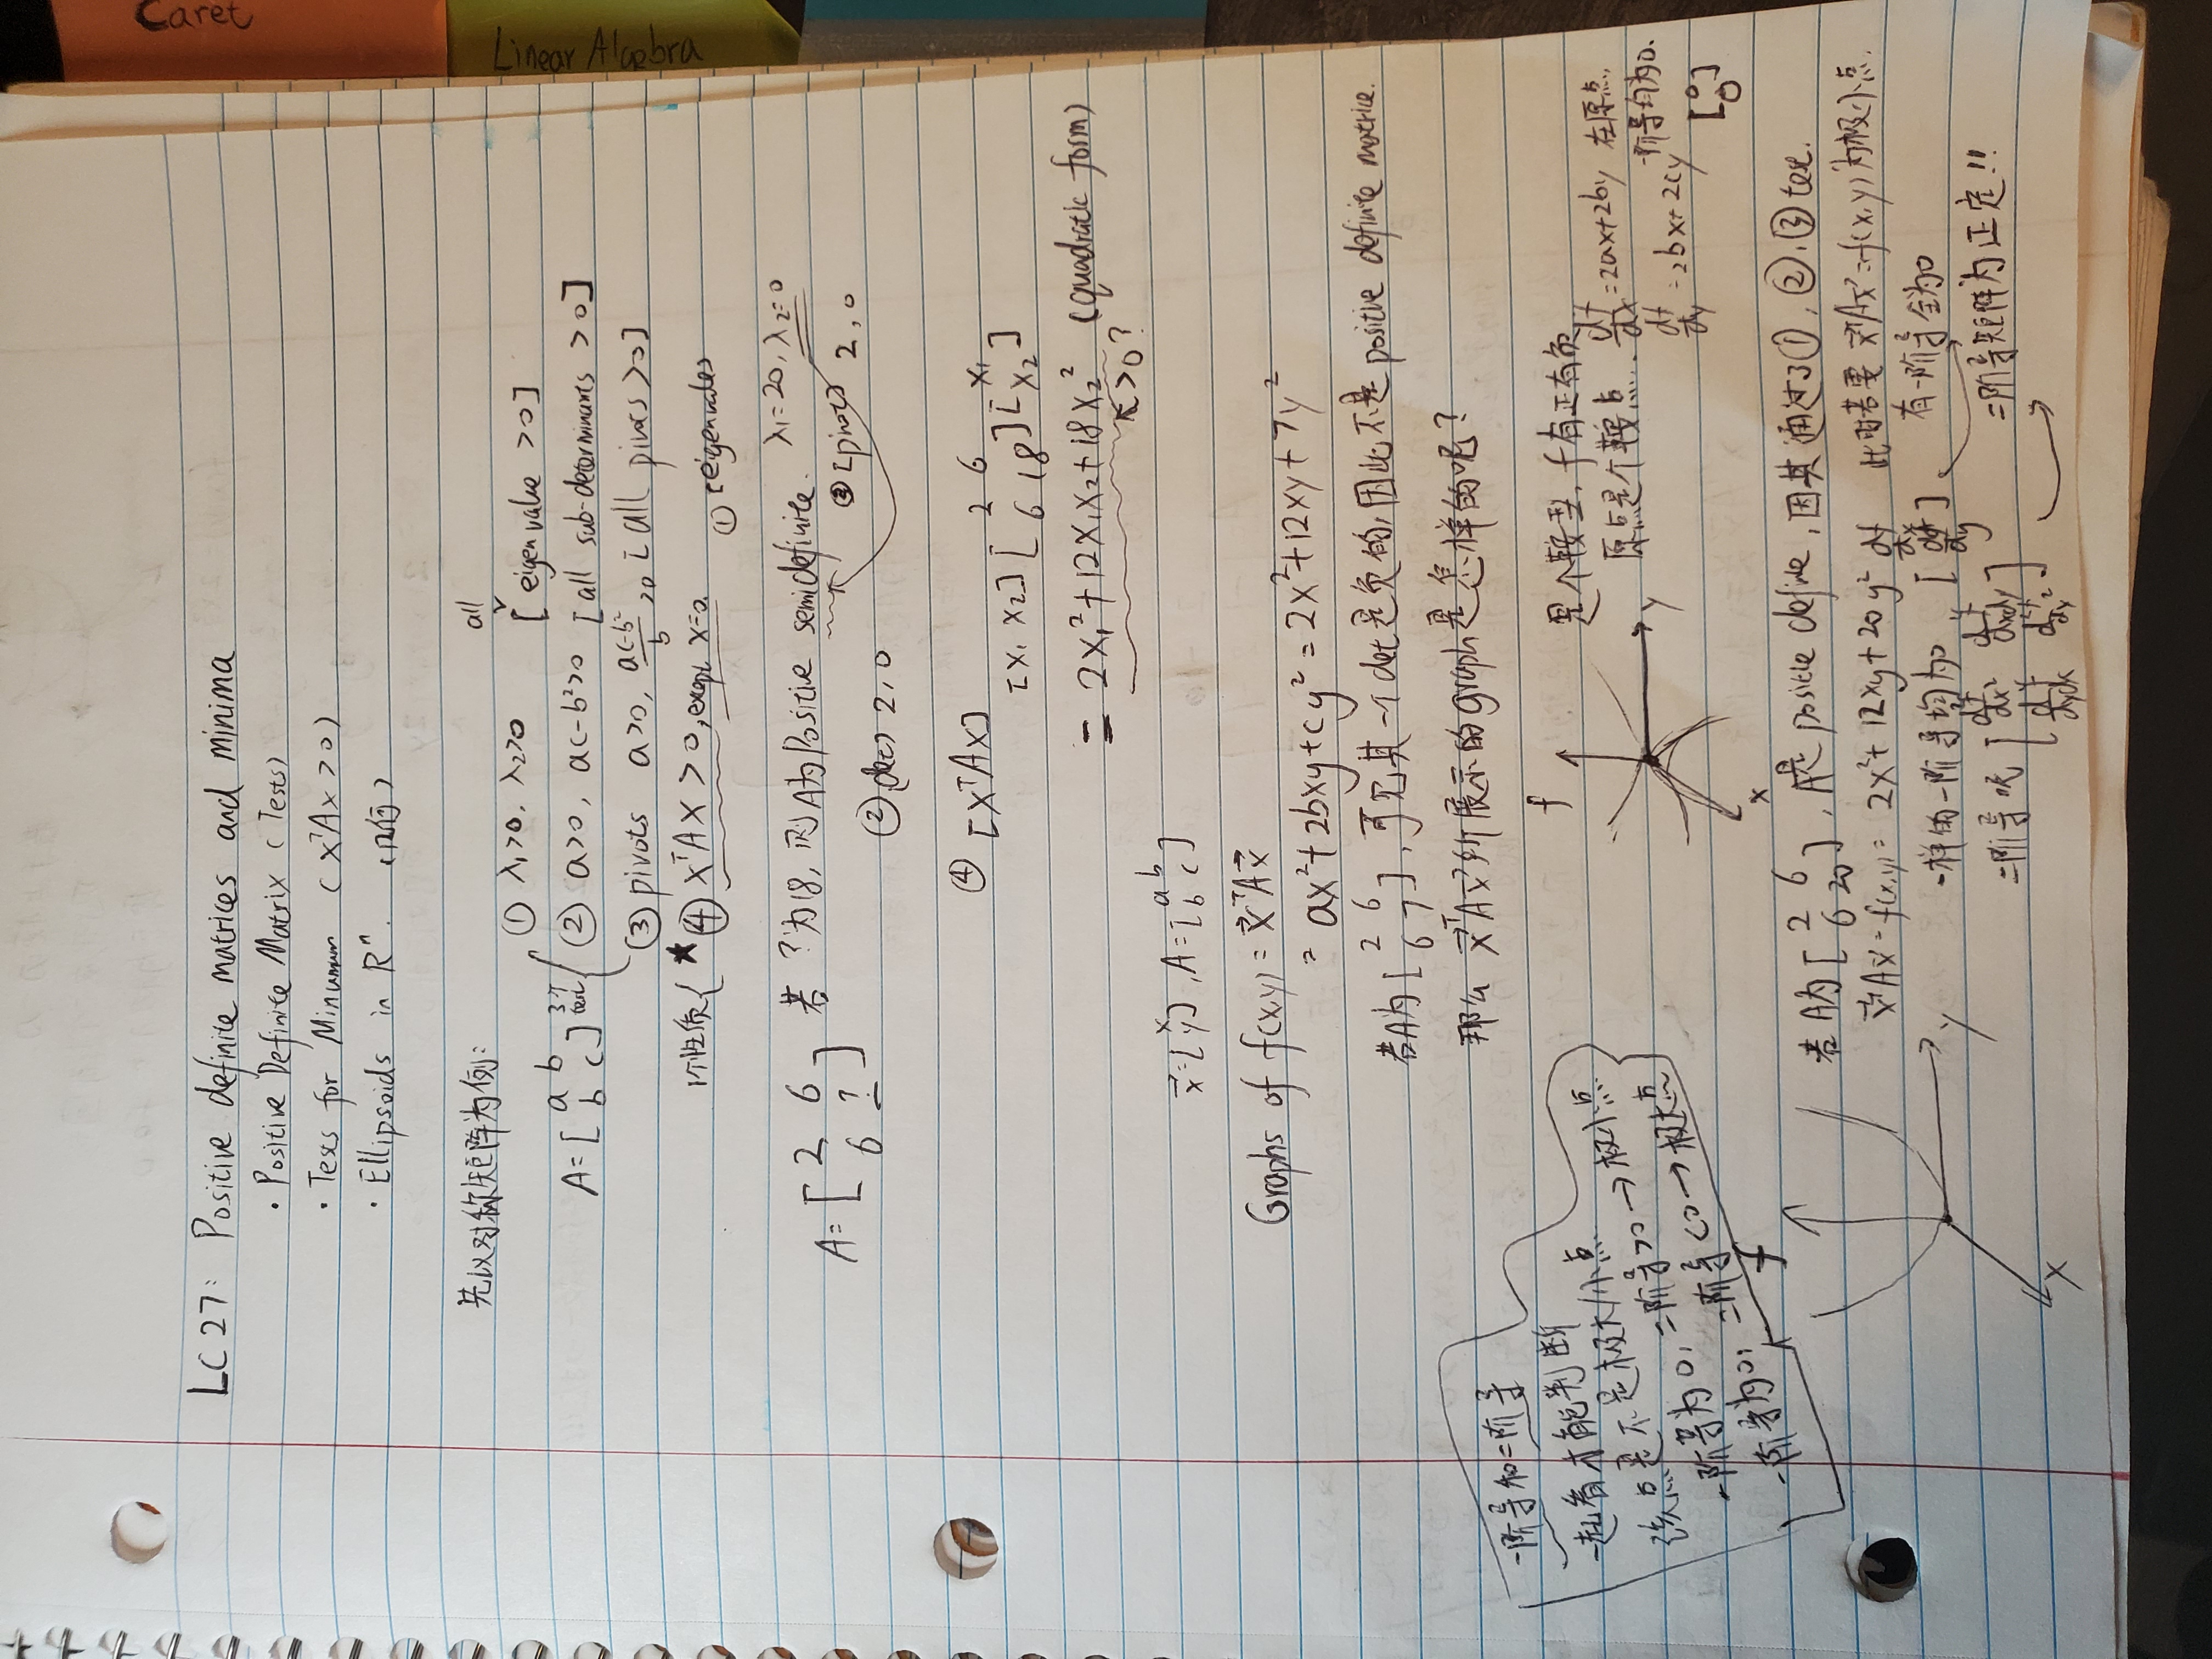 LC27: Positive definite matrices and minima
· Positive Definite Matrix (Tests)
· Tests for Minumum (XᵀAx>0)
· Ellipsoids in Rⁿ. (几何)
先以对称矩阵为例:
A=[a b
b c] 3个test
① λ₁>0, λ₂>0 [all eigenvalue >0]
② a>0, ac-b²>0 [all sub-determinants >0]
③ pivots a>0, (ac-b²)/b >0 [all pivots >0]
1个性质{ ★④ XᵀAX>0, except x=0.
① [eigenvalues]
λ₁=20, λ₂=0
A=[2 6
6 ?] 若?为18, 则A为Positive semidefinite.
③ [pivot] 2,0
② (det) 2,0
④ [XᵀAX]
[X₁ X₂][2 6
6 18][X₁
X₂]
= 2X₁²+12X₁X₂+18X₂² (quadratic form)
>0?
x⃗=[x
y], A=[a b
b c]
Graphs of f(x,y)=x⃗ᵀAx⃗
= ax²+2bxy+cy²=2x²+12xy+7y²
若A为[2 6
6 7], 可见其一个det是负的,因此不是positive definite matrice.
那么 x⃗ᵀAx⃗所展示的graph是怎样的呢?
一阶导和二阶导
一起看才能判断
该点是不是极大/小点
一阶导为0, 二阶导>0→极小点
一阶导为0, 二阶导<0→极大点
f
y
x
是个鞍型, f有正有负
原点是个鞍点.
df/dx=2ax+2by
df/dy=2bx+2cy
在原点,
一阶导均为0.
[0
0]
f
y
x
若A为[2 6
6 20], A是positive define, 因其通过了①,②,③test.
x⃗ᵀAx⃗=f(x,y)=2x²+12xy+20y²
此时若要x⃗ᵀAx⃗=f(x,y)为极小点.
一样的一阶导均为0 [df/dx
df/dy]
有一阶导全为0
二阶导呢
二阶导矩阵为正定!!
Caret
Linear Algebra